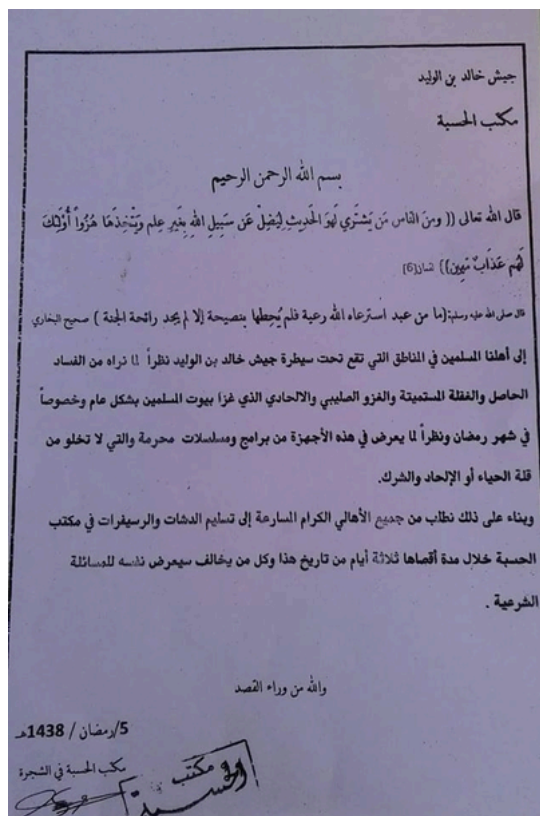 جيش خالد بن الوليد
مكتب الحسبة
بسم الله الرحمن الرحيم
قال الله تعالى (( ومنَ الناس مَن يَشتَري لَهوَ الحَديثِ لِيُضِلَّ عَن سَبيلِ اللهِ بِغَيرِ عِلم وَيَتَّخِذَهَا هُزُواً أُولَئِكَ
لَهُم عَذَابٌ مُهِين)) لقمان[6]
قال صلى الله عليه وسلم:(ما من عبد استرعاه الله رعية فلم يُحِطها بنصيحة إلا لم يجد رائحة الجنة ) صحيح البخاري
إلى أهلنا المسلمين في المناطق التي تقع تحت سيطرة جيش خالد بن الوليد نظراً لما نراه من الفساد
الحاصل والغفلة المستميتة والغزو الصليبي والالحادي الذي غزا بيوت المسلمين بشكل عام وخصوصاً
في شهر رمضان ونظراً لما يعرض في هذه الأجهزة من برامج ومسلسلات محرمة والتي لا تخلو من
قلة الحياء أو الإلحاد والشرك.
وبناء على ذلك نطلب من جميع الأهالي الكرام المسارعة إلى تسليم الدشات والرسيفرات في مكتب
الحسبة خلال مدة أقصاها ثلاثة أيام من تاريخ هذا وكل من يخالف سيعرض نفسه للمسائلة
الشرعية .
والله من وراء القصد
5/رمضان / 1438هـ
مكتب الحسبة في الشجرة
مكتب
الحسبة